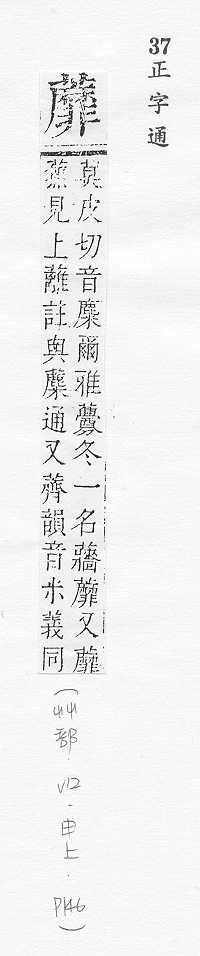 37正字通
蘼
莫皮切音麋爾雅虋冬一名蘠蘼又蘼
蕪見上蘺註與蘪通又薺韻音米義同
(艸部．V12．申上．P146)